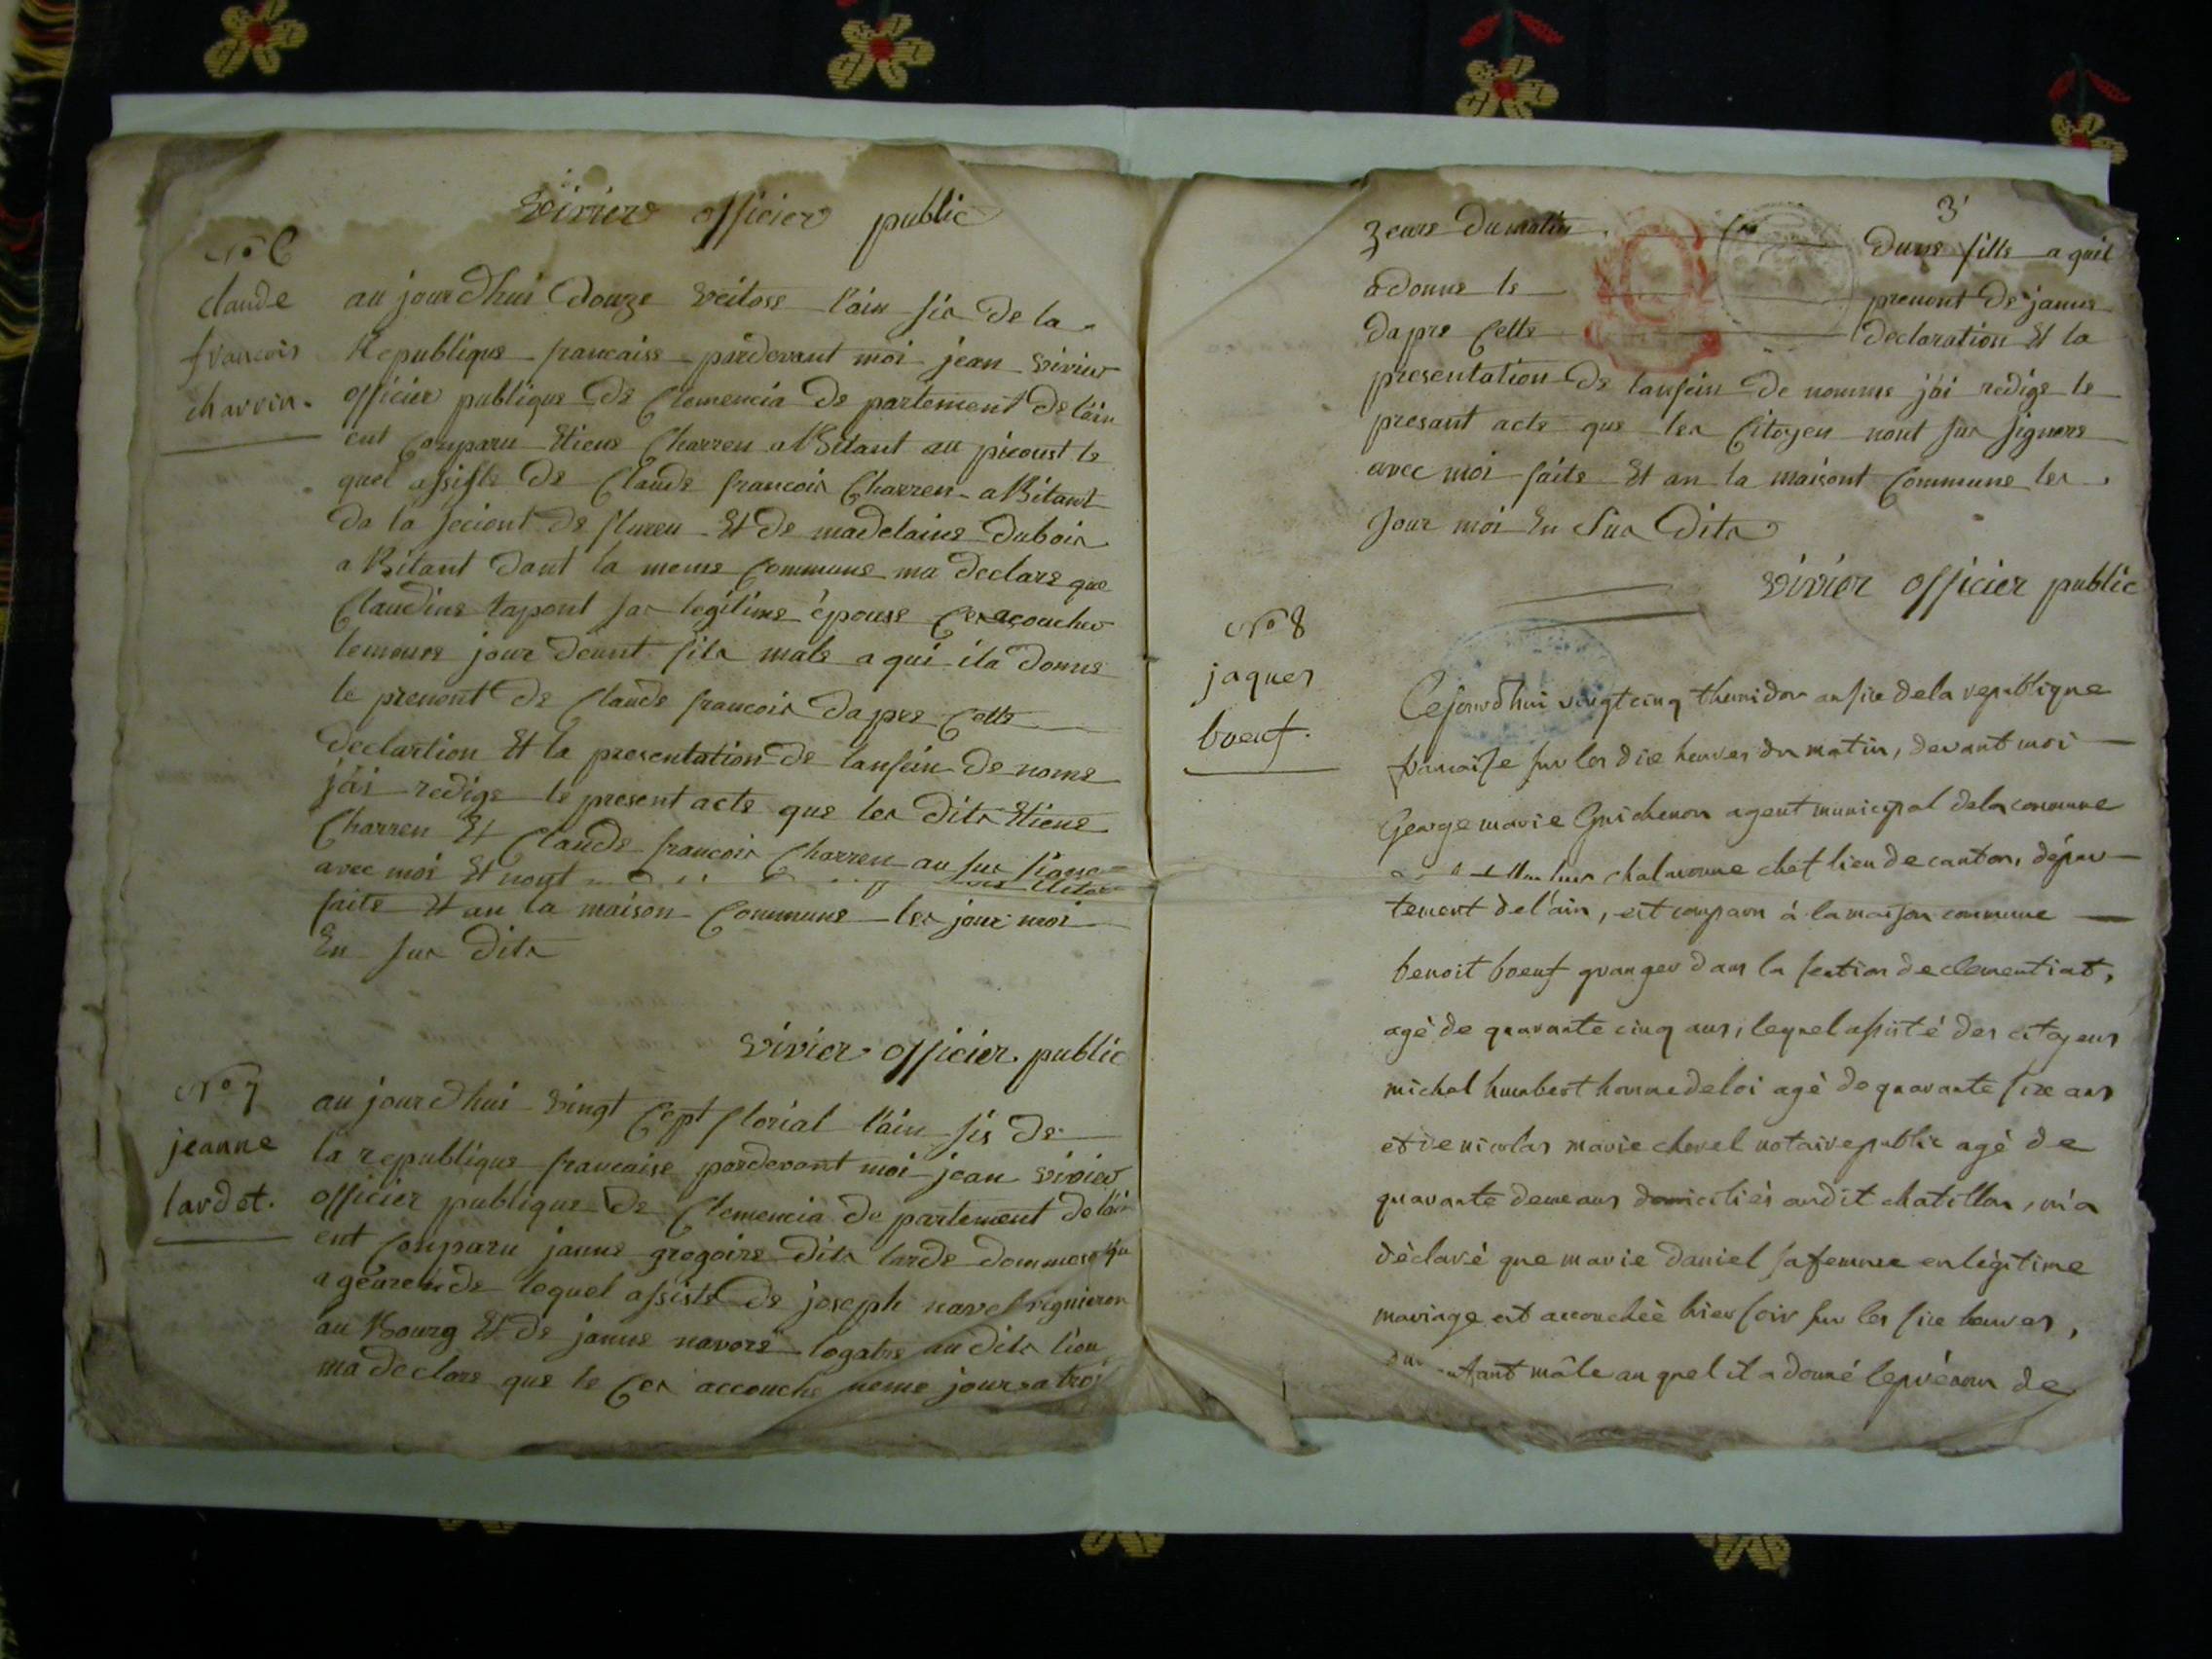 vivier officier public
N° 6
claude
francois
charvin.
au jour dhui douze veitose l'ain sis de la
Republique francaise pardevant moi jean vivier
officier publique de Clemencia de partement de lain
ent Conparu Etiene Charren abitant au picoust le
quel assiste de Claude francois Charren abitant
da la seciont de flureu Et de madelaine dubois
abitant dant la meme Commune ma declare que
Claudine tapont sas legitime épouse Ces acoucher
lememe jour deunt fils male a qui ila donne
le prenont de Claude francois dapre Cette
declartion Et la presentation de lanfein de nome
jai redige le present acte que les dits Etiene
Charren Et Claude francois Charren au sus signe
avec moi Et nont
faite Et an la maison Commune les jour moi
En sus dits
vivier officier public
N° 7
jeanne
lardet.
au jour dhui vingt Cept florial l'ain sis de
la republique francaise pardevant moi jean vivier
officier publique de Clemencia de partement de lain
ent Conparu janne gregoire dits larde
lequel assiste de joseph navel vigneron
au Bourg Et de janne navore logatre au dits lieu
ma declare que le Ces accouche meme jour a troi
3
3 eure du matin dune fille a quil
a donne le prenont de janne
dapre Cette declaration Et la
presentation de lanfein de nomme jai redige le
presant acte que les Citoyen nont sus signere
avec moi faite Et an la maisont Commune les
Jour moi En sus dits
vivier officier public
N° 8
jaques
boeuf.
Cejourdhui vingt cinq thermidor an six de la republique
francaise sur les dix heures du matin, devant moi
George marie Guichenon agent municipal de la commune
chalaronne chef lieu de canton, dépar-
tement de l'ain, est comparu à la maison commune
benoit boeuf granger dans la section de clementiat,
agé de quarante cinq ans, lequel assisté des citoyens
michel humbert homme de loi agé de quarante six ans
et de nicolas marie chevel notaire public agé de
quarante deux ans domiciliés audit chatillon, m'a
déclaré que marie daniel sa femme en légitime
mariage est accouchée hier soir sur les six heures,
enfant mâle au quel il a donné le prénom de